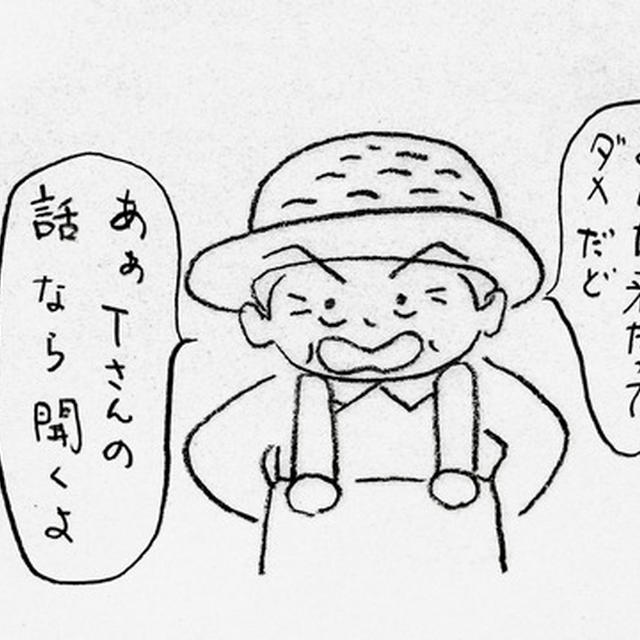 ダメだど
あぁTさんの
話なら聞くよ